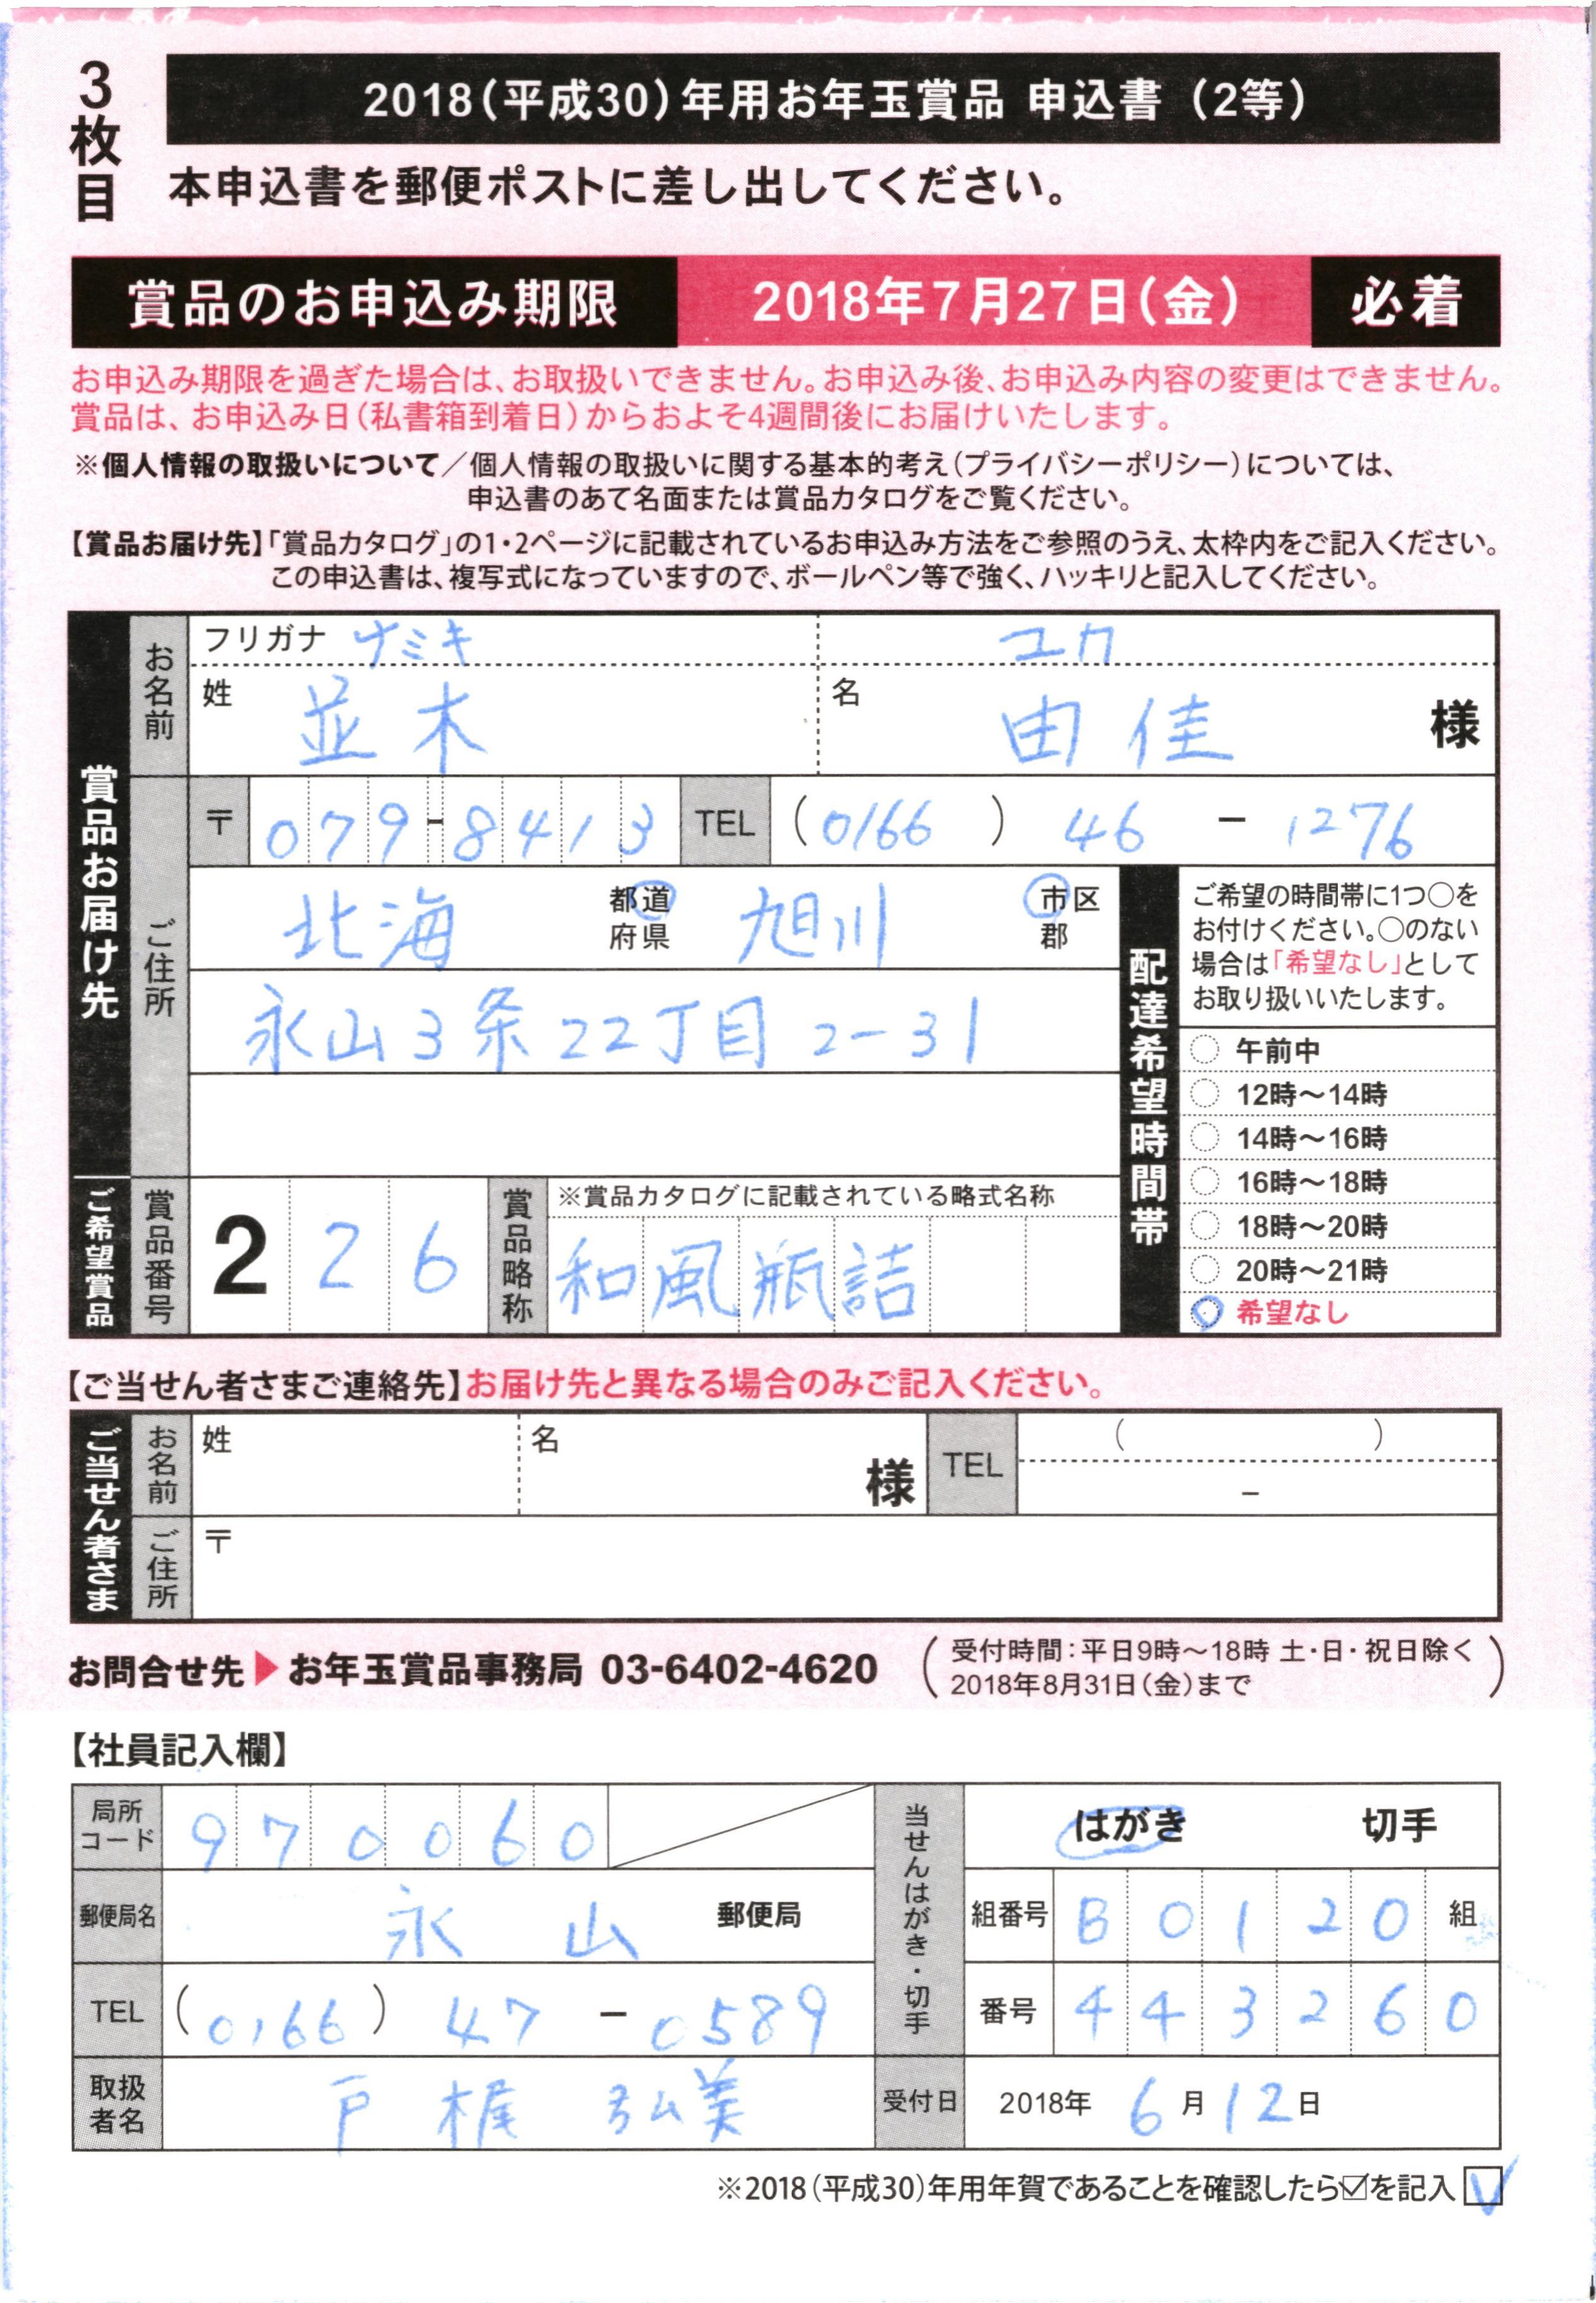 3枚目
2018（平成30）年用お年玉賞品 申込書（2等）
本申込書を郵便ポストに差し出してください。
賞品のお申込み期限 2018年7月27日（金） 必着
お申込み期限を過ぎた場合は、お取扱いできません。お申込み後、お申込み内容の変更はできません。
賞品は、お申込み日（私書箱到着日）からおよそ4週間後にお届けいたします。
※個人情報の取扱いについて／個人情報の取扱いに関する基本的考え（プライバシーポリシー）については、
申込書のあて名面または賞品カタログをご覧ください。
【賞品お届け先】「賞品カタログ」の1・2ページに記載されているお申込み方法をご参照のうえ、太枠内をご記入ください。
この申込書は、複写式になっていますので、ボールペン等で強く、ハッキリと記入してください。
賞品お届け先
お名前
フリガナ ナミキ ユカ
姓 並木 名 由佳 様
ご住所
〒 079-8413 TEL (0166) 46 - 1276
北海 都道府県 旭川 市区郡
永山3条22丁目2-31
配達希望時間帯
ご希望の時間帯に1つ○を
お付けください。○のない
場合は「希望なし」として
お取り扱いいたします。
午前中
12時～14時
14時～16時
16時～18時
18時～20時
20時～21時
希望なし
ご希望賞品
賞品番号 2 2 6
賞品略称 ※賞品カタログに記載されている略式名称
和風瓶詰
【ご当せん者さまご連絡先】お届け先と異なる場合のみご記入ください。
ご当せん者さま
お名前 姓 名 様 TEL ( ) -
ご住所 〒
お問合せ先▶お年玉賞品事務局 03-6402-4620
（受付時間：平日9時～18時 土・日・祝日除く
2018年8月31日（金）まで）
【社員記入欄】
局所コード 970060
郵便局名 永山 郵便局
TEL (0166) 47 - 0589
取扱者名 戸梶 弘美
当せんはがき・切手
はがき 切手
組番号 B0120 組
番号 443260
受付日 2018年 6月12日
※2018（平成30）年用年賀であることを確認したら☑を記入